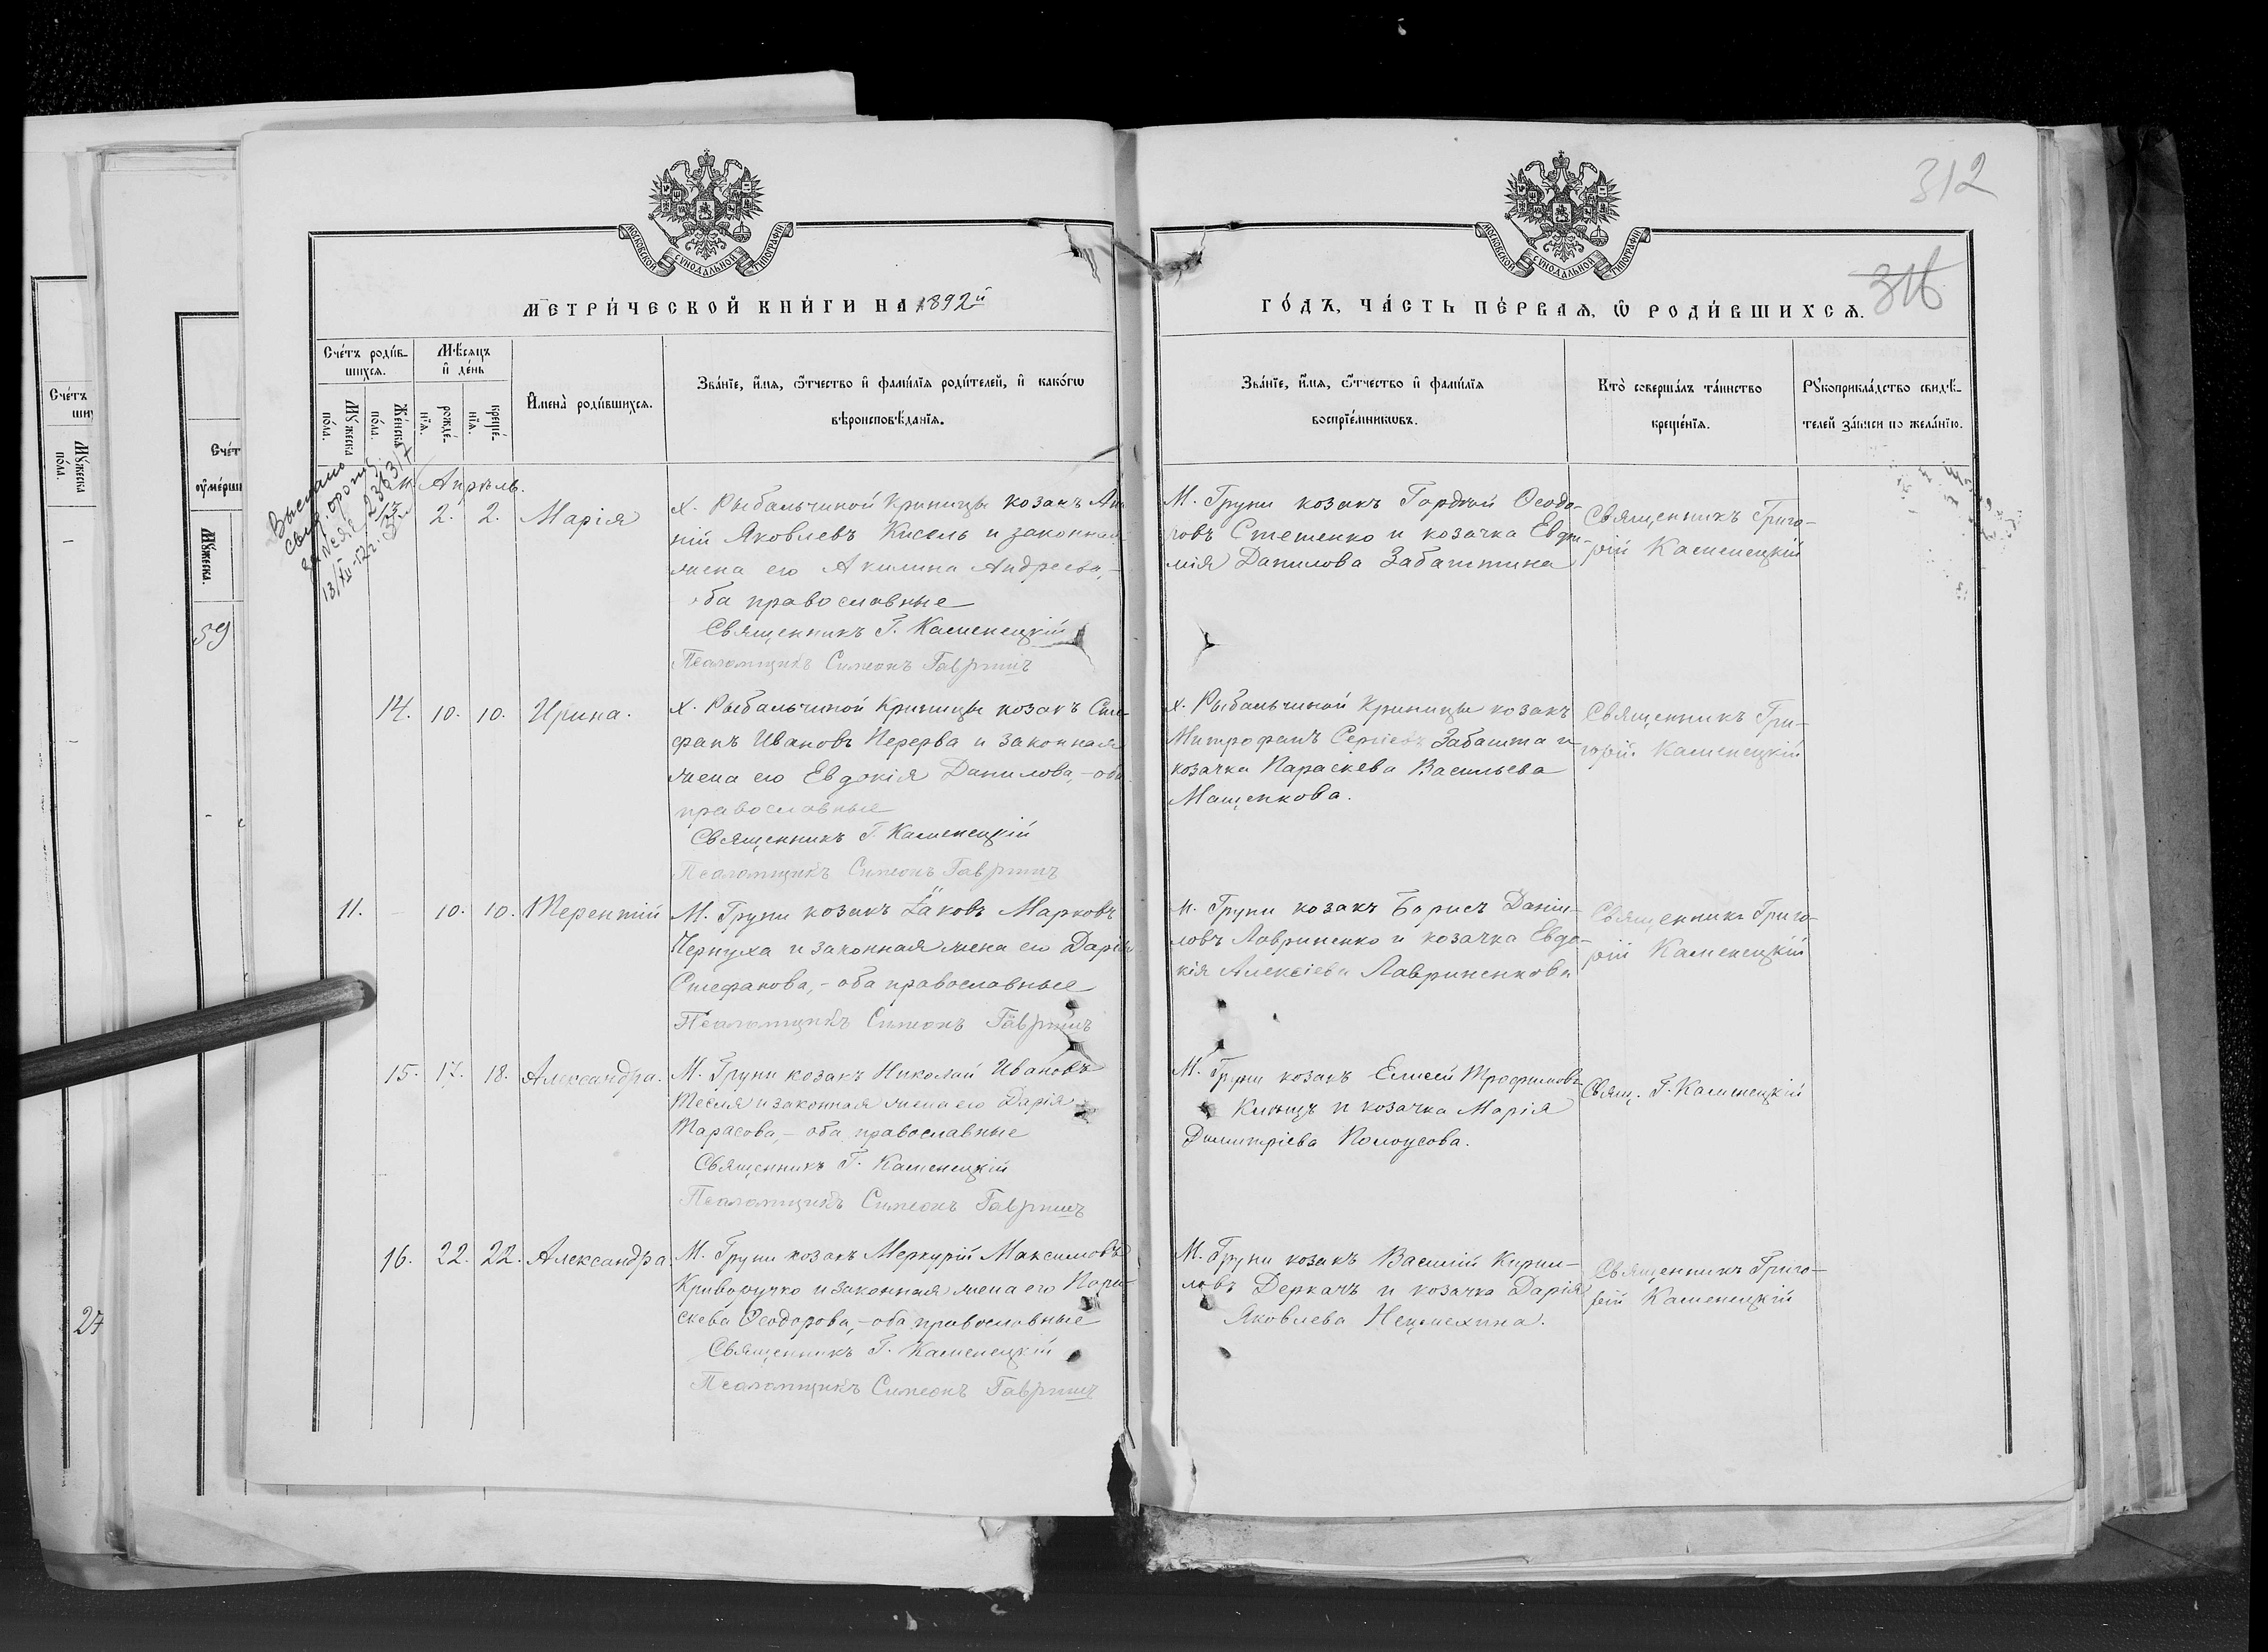 312
316
МОСКОВСКОЙ СѴНОДАЛЬНОЙ ТИПОГРАФІИ
МЕТРИ́ЧЕСКОЙ КНИ́ГИ НА 1892й
Сче́тъ роди́в-
шихсѧ.
Мꙋ́жеска
по́ла.
Же́нска
по́ла.
Мѣ́сѧцъ
и҆ де́нь
рожде́-
нїѧ.
креще́-
нїѧ.
И҆мена̀ роди́вшихсѧ.
Зва́нїе, и҆́мѧ, ѻ҆́тчество и҆ фами́лїѧ роди́телей, и҆ како́гѡ
вѣроисповѣ́данїѧ.
Апрѣль.
13
2.
2.
Марія
х. Рыбальчиной Криницы козакъ
ній Яковлевъ Кисель и законная
жена его Акилина Андреева,-
оба православные
Священникъ Г. Каменецкій
Псаломщикъ Симеонъ Гавришъ
14.
10.
10.
Ирина.
х. Рыбальчиной Криницы козакъ Сте-
фанъ Ивановъ Перерва и законная
жена его Евдокія Данилова,-оба
православные
Священникъ Г. Каменецкій
Псаломщикъ Симеонъ Гавришъ
11.
10.
10.
Терентій
М. Груни козакъ Іаковъ Марковъ
Чернуха и законная жена его Дарія
Стефанова,-оба православные
Псаломщикъ Симеонъ Гавришъ
15.
17.
18.
Александра.
М. Груни козакъ Николай Ивановъ
Тесля и законная жена его Дарія
Тарасова,-оба православные
Священникъ Г. Каменецкій
Псаломщикъ Симеонъ Гавришъ
16.
22.
22.
Александра
М. Груни козакъ Меркурій Максимовъ
Криворучко и законная жена его Пара-
скева Ѳеодорова,-оба православные
Священникъ Г. Каменецкій
Псаломщикъ Симеонъ Гавришъ
МОСКОВСКОЙ СѴНОДАЛЬНОЙ ТИПОГРАФІИ
ГО́ДЪ, ЧА́СТЬ ПЕ́РВАѦ, Ѡ҆ РОДИ́ВШИХСѦ.
Зва́нїе, и҆́мѧ, ѻ҆́тчество и҆ фами́лїѧ
воспрїе́мникѡвъ.
Кто̀ соверша́лъ та́инство
креще́нїѧ.
Рꙋкоприкла́дство свидѣ́-
телей за́писи по жела́нїю.
М. Груни козакъ Гордѣй Ѳеодо-
ровъ Стеценко и козачка Евфи-
мія Данилова Забаштина
Священникъ Григо-
рій Каменецкій
х. Рыбальчиной Криницы козакъ
Митрофанъ Сергіевъ Забашта и
козачка Параскева Васильева
Мащенкова.
Священникъ Гри-
горій Каменецкій
М. Груни козакъ Борисъ Даніи-
ловъ Лавриненко и козачка Евдо-
кія Алексіева Лавриненкова
Священникъ Григо-
рій Каменецкій
М. Груни козакъ Елисей Трофимовъ
и козачка Марія
Димитріева
Свящ. Г. Каменецкій
М. Груни козакъ Василій Кирил-
ловъ Деркачъ и козачка Дарія
Яковлева
Священникъ Григо-
рій Каменецкій
Сче́тъ
Мꙋ́жеска
по́ла.
24
Сче́т
Мꙋ́жеска.
59